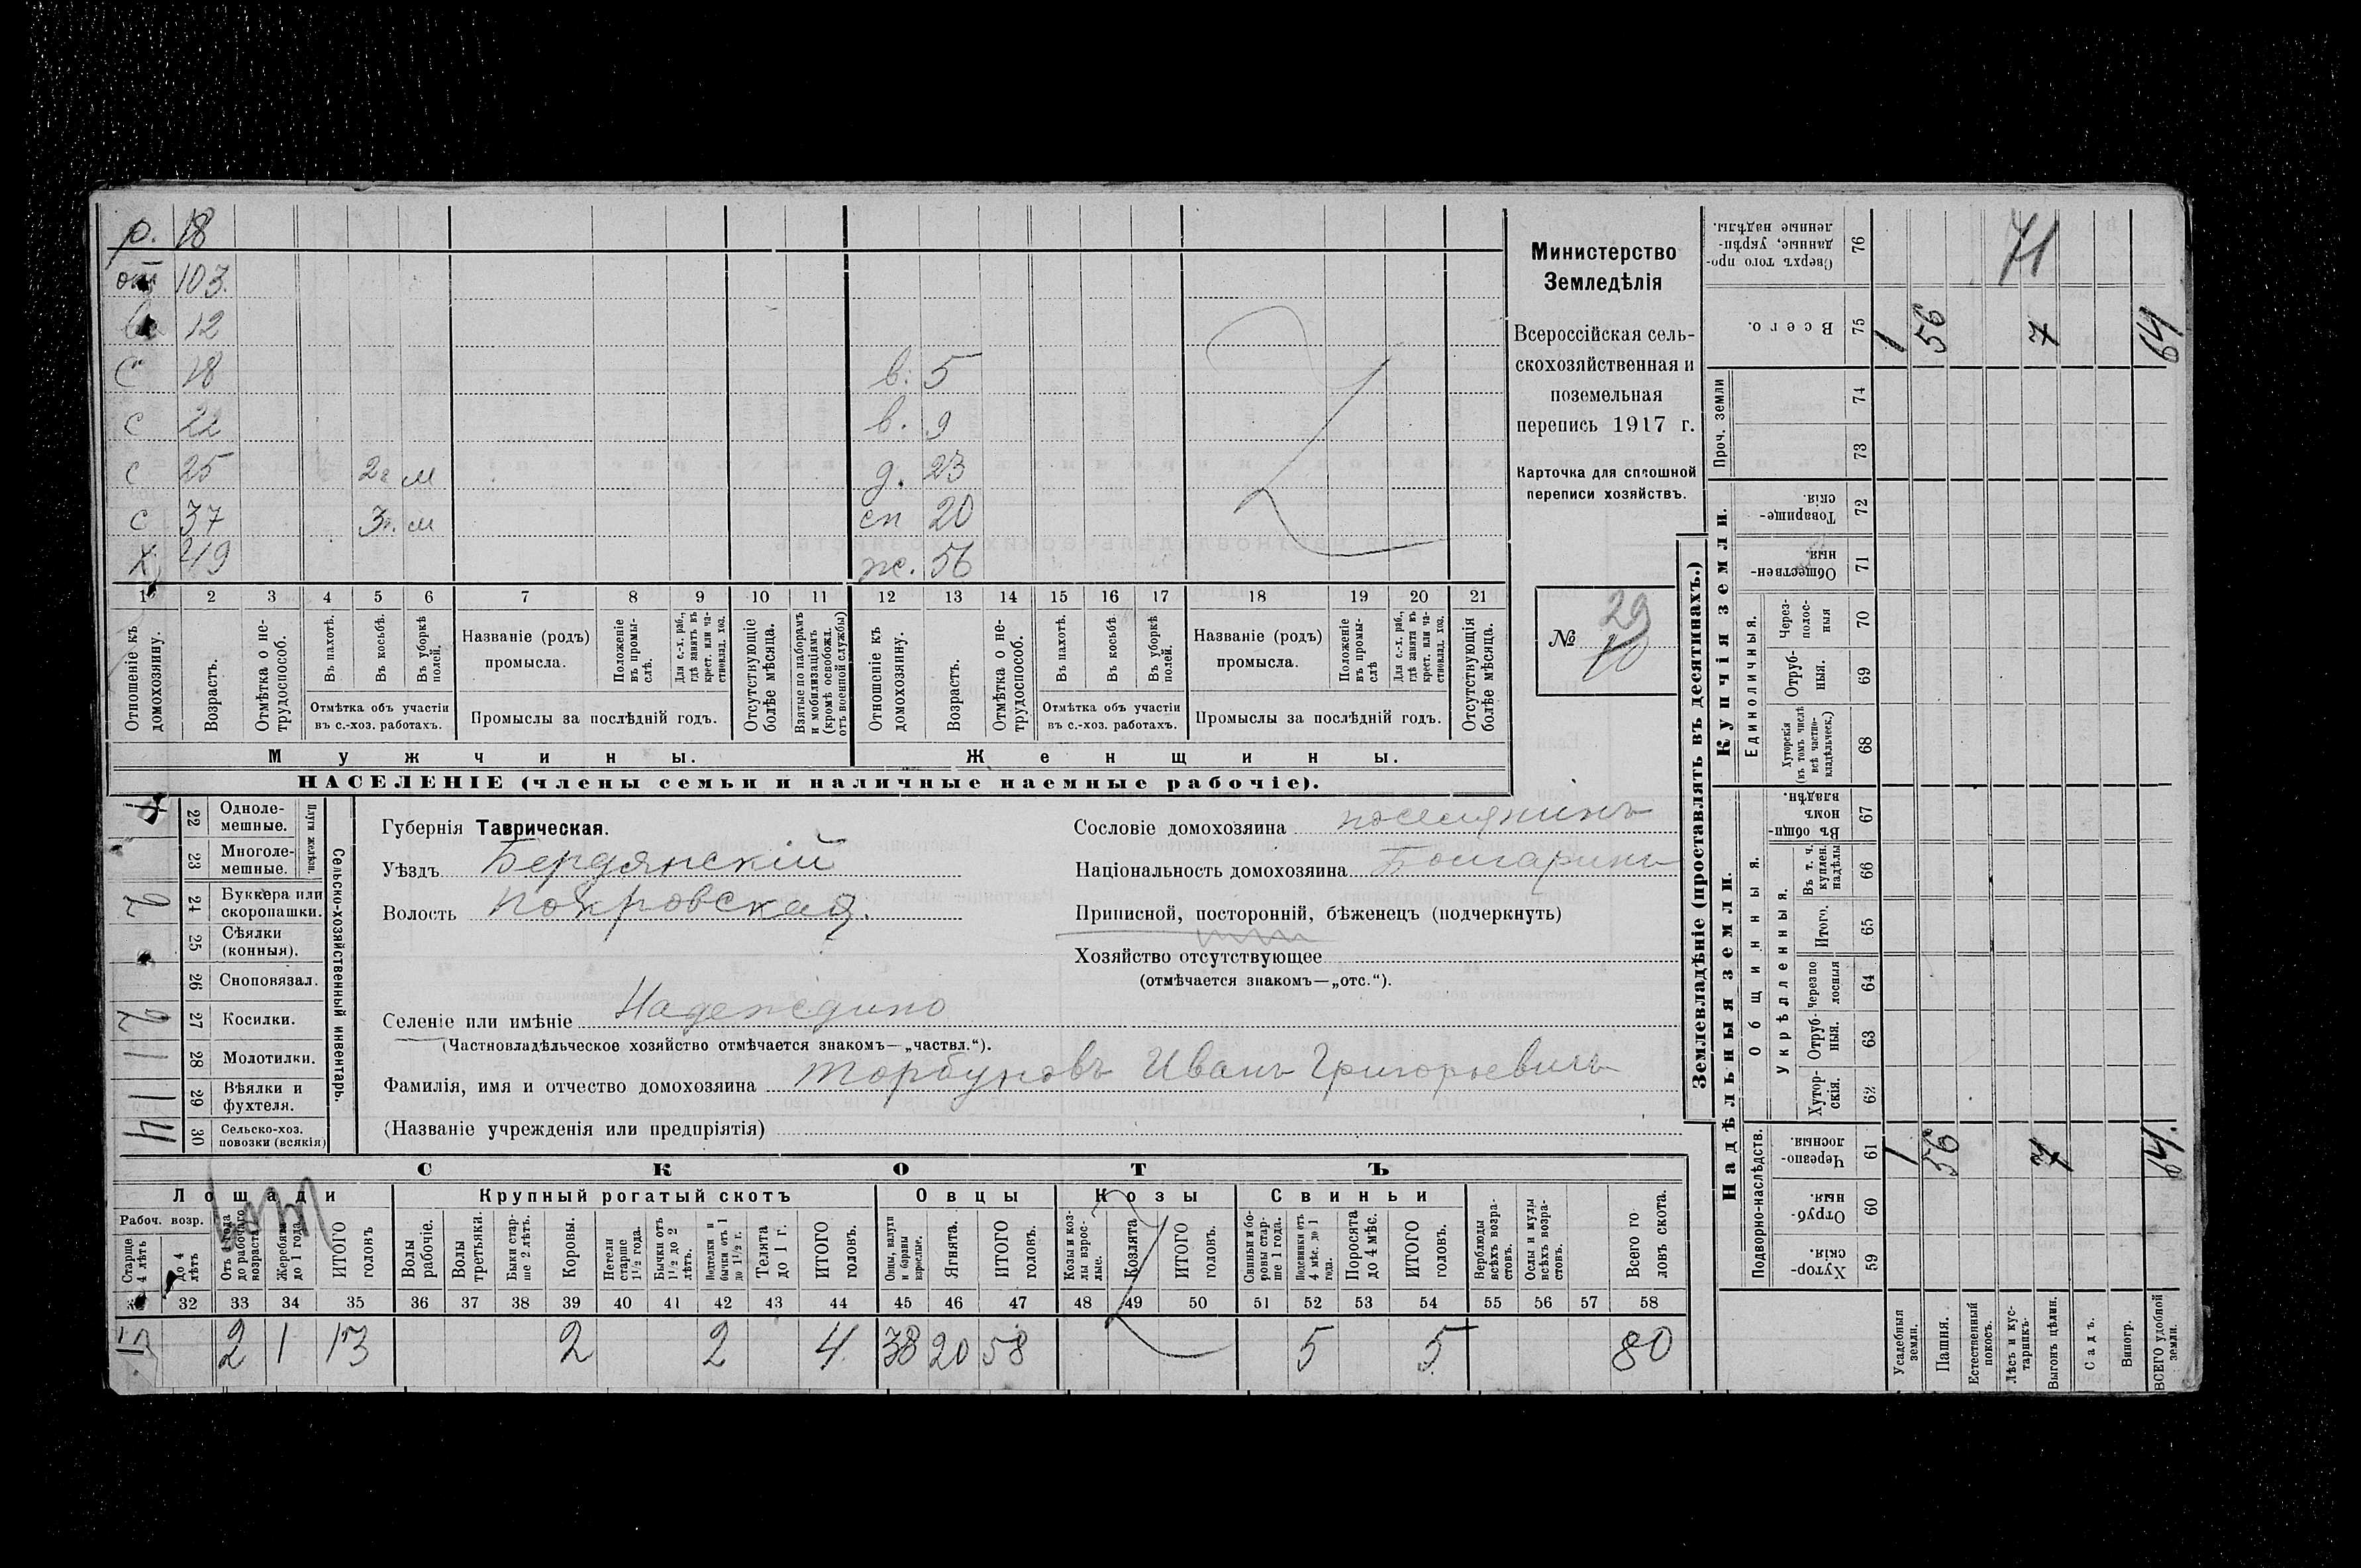 р. 18
от 103.
12
с 18 в. 5
с 22 в. 9
с 25 2г м д. 23
с 37 3г. м сн 20
х 49 ж. 56
1 2 3 4 5 6 7 8 9 10 11 12 13 14 15 16 17 18 19 20 21
Отношеніе къ домохозяину.
Возрастъ.
Отмѣтка о нетрудоспособ.
Въ пахотѣ.
Въ косьбѣ.
Въ уборкѣ полей.
Отмѣтка объ участіи въ с.-хоз. работахъ.
Названіе (родъ) промысла.
Положеніе въ промыслѣ.
Для с.-х. раб., гдѣ занятъ въ крест. или частновлад. хоз.
Промыслы за послѣдній годъ.
Отсутствующіе болѣе мѣсяца.
Взятые по наборамъ и мобилизаціямъ (кромѣ освобожд. отъ военной службы)
Отношеніе къ домохозяину.
Возрастъ.
Отмѣтка о нетрудоспособ.
Въ пахотѣ.
Въ косьбѣ.
Въ уборкѣ полей.
Отмѣтка объ участіи въ с.-хоз. работахъ.
Названіе (родъ) промысла.
Положеніе въ промыслѣ
Для с.-х. раб., гдѣ занята въ крест. или частновлад. хоз.
Промыслы за послѣдній годъ.
Отсутствующія болѣе мѣсяца.
Мужчины. Женщины.
НАСЕЛЕНІЕ (члены семьи и наличные наемные рабочіе).
Министерство
Земледѣлія
Всероссійская сель-
скохозяйственная и
поземельная
перепись 1917 г.
Карточка для сплошной
переписи хозяйствъ.
№ 29
10
22 Одноле-
мешные.
23 Многоле-
мешные.
Плуги желѣзн.
2 24 Буккера или
скоропашки.
25 Сѣялки
(конныя).
26 Сноповязал.
2 27 Косилки.
1 28 Молотилки.
1 29 Вѣялки и
фухтеля.
4 30 Сельско-хоз.
повозки (всякія)
Сельско-хозяйственный инвентарь.
Губернія Таврическая.
Уѣздъ Бердянскій
Волость Покровская.
Сословіе домохозяина поселянинъ
Національность домохозяина Болгаринъ
Приписной, посторонній, бѣженецъ (подчеркнуть)
Хозяйство отсутствующее
(отмѣчается знакомъ—„отс.“).
Селеніе или имѣніе Надеждино
(Частновладѣльческое хозяйство отмѣчается знакомъ—„частвл.“).
Фамилія, имя и отчество домохозяина Торбуновъ Иванъ Григорьевичъ
(Названіе учрежденія или предпріятія)
СКОТЪ
Лошади Крупный рогатый скотъ Овцы Козы Свиньи
Рабоч. возр.
Старше 4 лѣтъ
до 4 лѣтъ
Отъ 1 года до рабочаго возраста
Жеребята до 1 года
ИТОГО головъ
Волы рабочіе.
Волы третьяки.
Быки старше 2 лѣтъ.
Коровы.
Нетели старше 1½ года.
Бычки отъ 1½ до 2 лѣтъ.
Подтелки и бычки отъ 1 до 1½ г.
Телята до 1 г.
ИТОГО головъ.
Овцы, валухи и бараны взрослые.
Ягнята.
ИТОГО головъ.
Козы и козлы взрослые.
Козлята
ИТОГО головъ.
Свиньи и боровы старше 1 года.
Подсвинки отъ 4 мѣс. до 1 года.
Поросята до 4 мѣс.
ИТОГО головъ.
Верблюды всѣхъ возрастовъ.
Ослы и мулы всѣхъ возрастовъ.
Всего головъ скота.
32 33 34 35 36 37 38 39 40 41 42 43 44 45 46 47 48 49 50 51 52 53 54 55 56 57 58
2 1 13 2 2 4 38 20 58 5 5 80
Землевладѣніе (проставлять въ десятинахъ.)
Надѣльныя земли. Купчія земли.
Подворно-наслѣдств.
Общинныя.
Укрѣпленныя.
Единоличныя.
Проч. земли
59 Хуторскія.
60 Отрубныя.
61 Черезполосныя.
62 Хуторскія.
63 Отрубныя.
64 Черезполосныя
65 Итого.
66 Въ т. ч. куплен. надѣлы
67 Въ общинномъ владѣн.
68 Хуторскія (въ томъ числѣ всѣ частновладѣльческ.)
69 Отрубныя.
70 Черезполосныя
71 Общественныя.
72 Товарищескія.
73
74
75 Всего.
76 Сверхъ того проданные, укрѣпленные надѣлы.
71
1 56 7 64
1 56 7 64.
Усадебныя земли.
Пашня.
Естественный покосъ.
Лѣсъ и кустарникъ.
Выгонъ цѣлин.
Садъ.
Виногр.
ВСЕГО удобной земли.